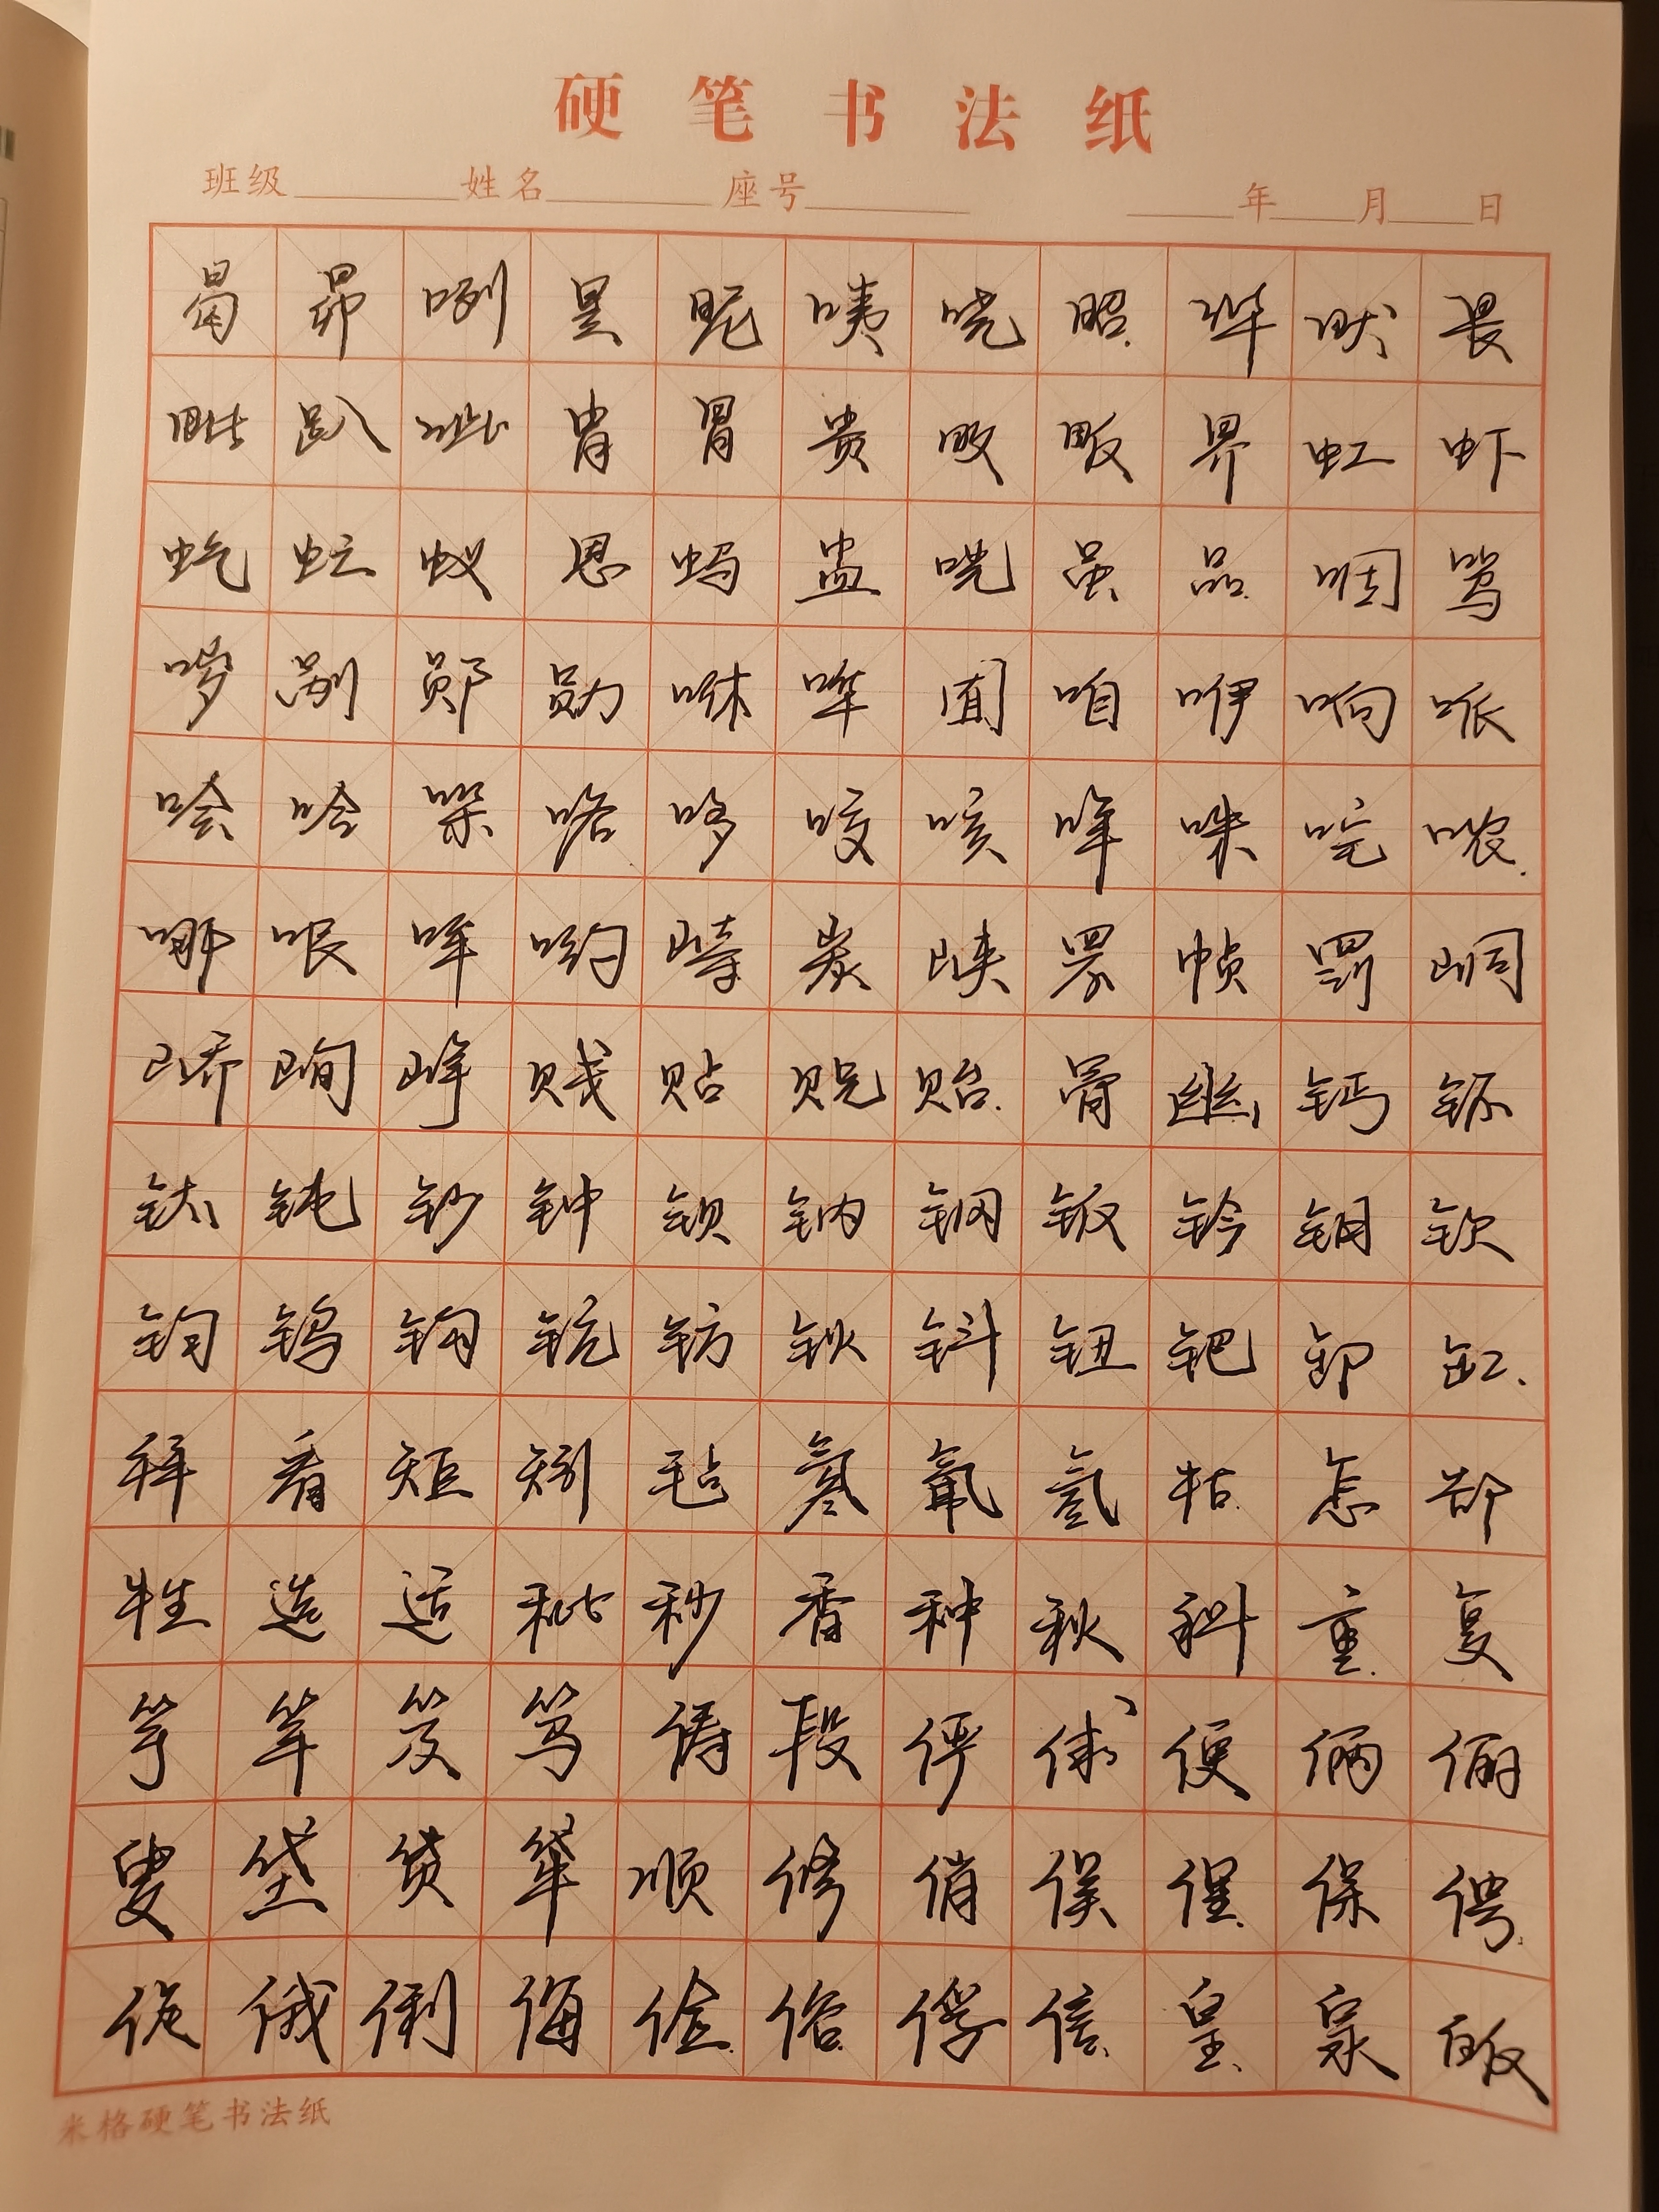 硬笔书法纸
班级 姓名 座号 年 月 日
曷昴咧昱昵咦哓昭哔畎畏
毗趴呲胄胃贵畋畈界虹虾
虼虻蚁思蚂盅咣虽品咽骂
哕剐郧勋咻哗囿咱咿响哌
哙哈哚咯哆咬咳咩咪咤哝
哪哏哞哟峙炭峡罘帧罚峒
峤峋峥贱贴贶贻骨幽钙钚
钛钝钞钟钡钠钢钣钤钥钦
钧钨钩钪钫钬钭钮钯卸缸
拜看矩矧毡氡氟氢牯怎郜
牲选适秕秒香种秋科重复
竽竿笈笃俦段俨俅便俩俪
叟垡贷牮顺修俏俣俚保俜
促俄俐侮俭俗俘信皇泉皈
米格硬笔书法纸